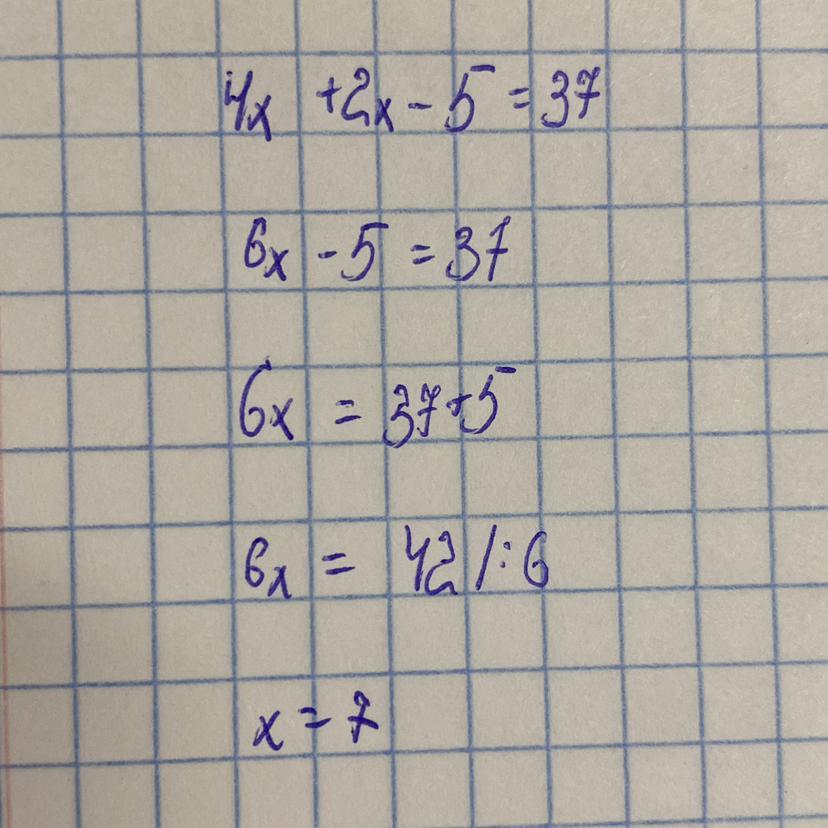 4x + 2x - 5 = 37
6x - 5 = 37
6x = 37 + 5
6x = 42 /:6
x = 7